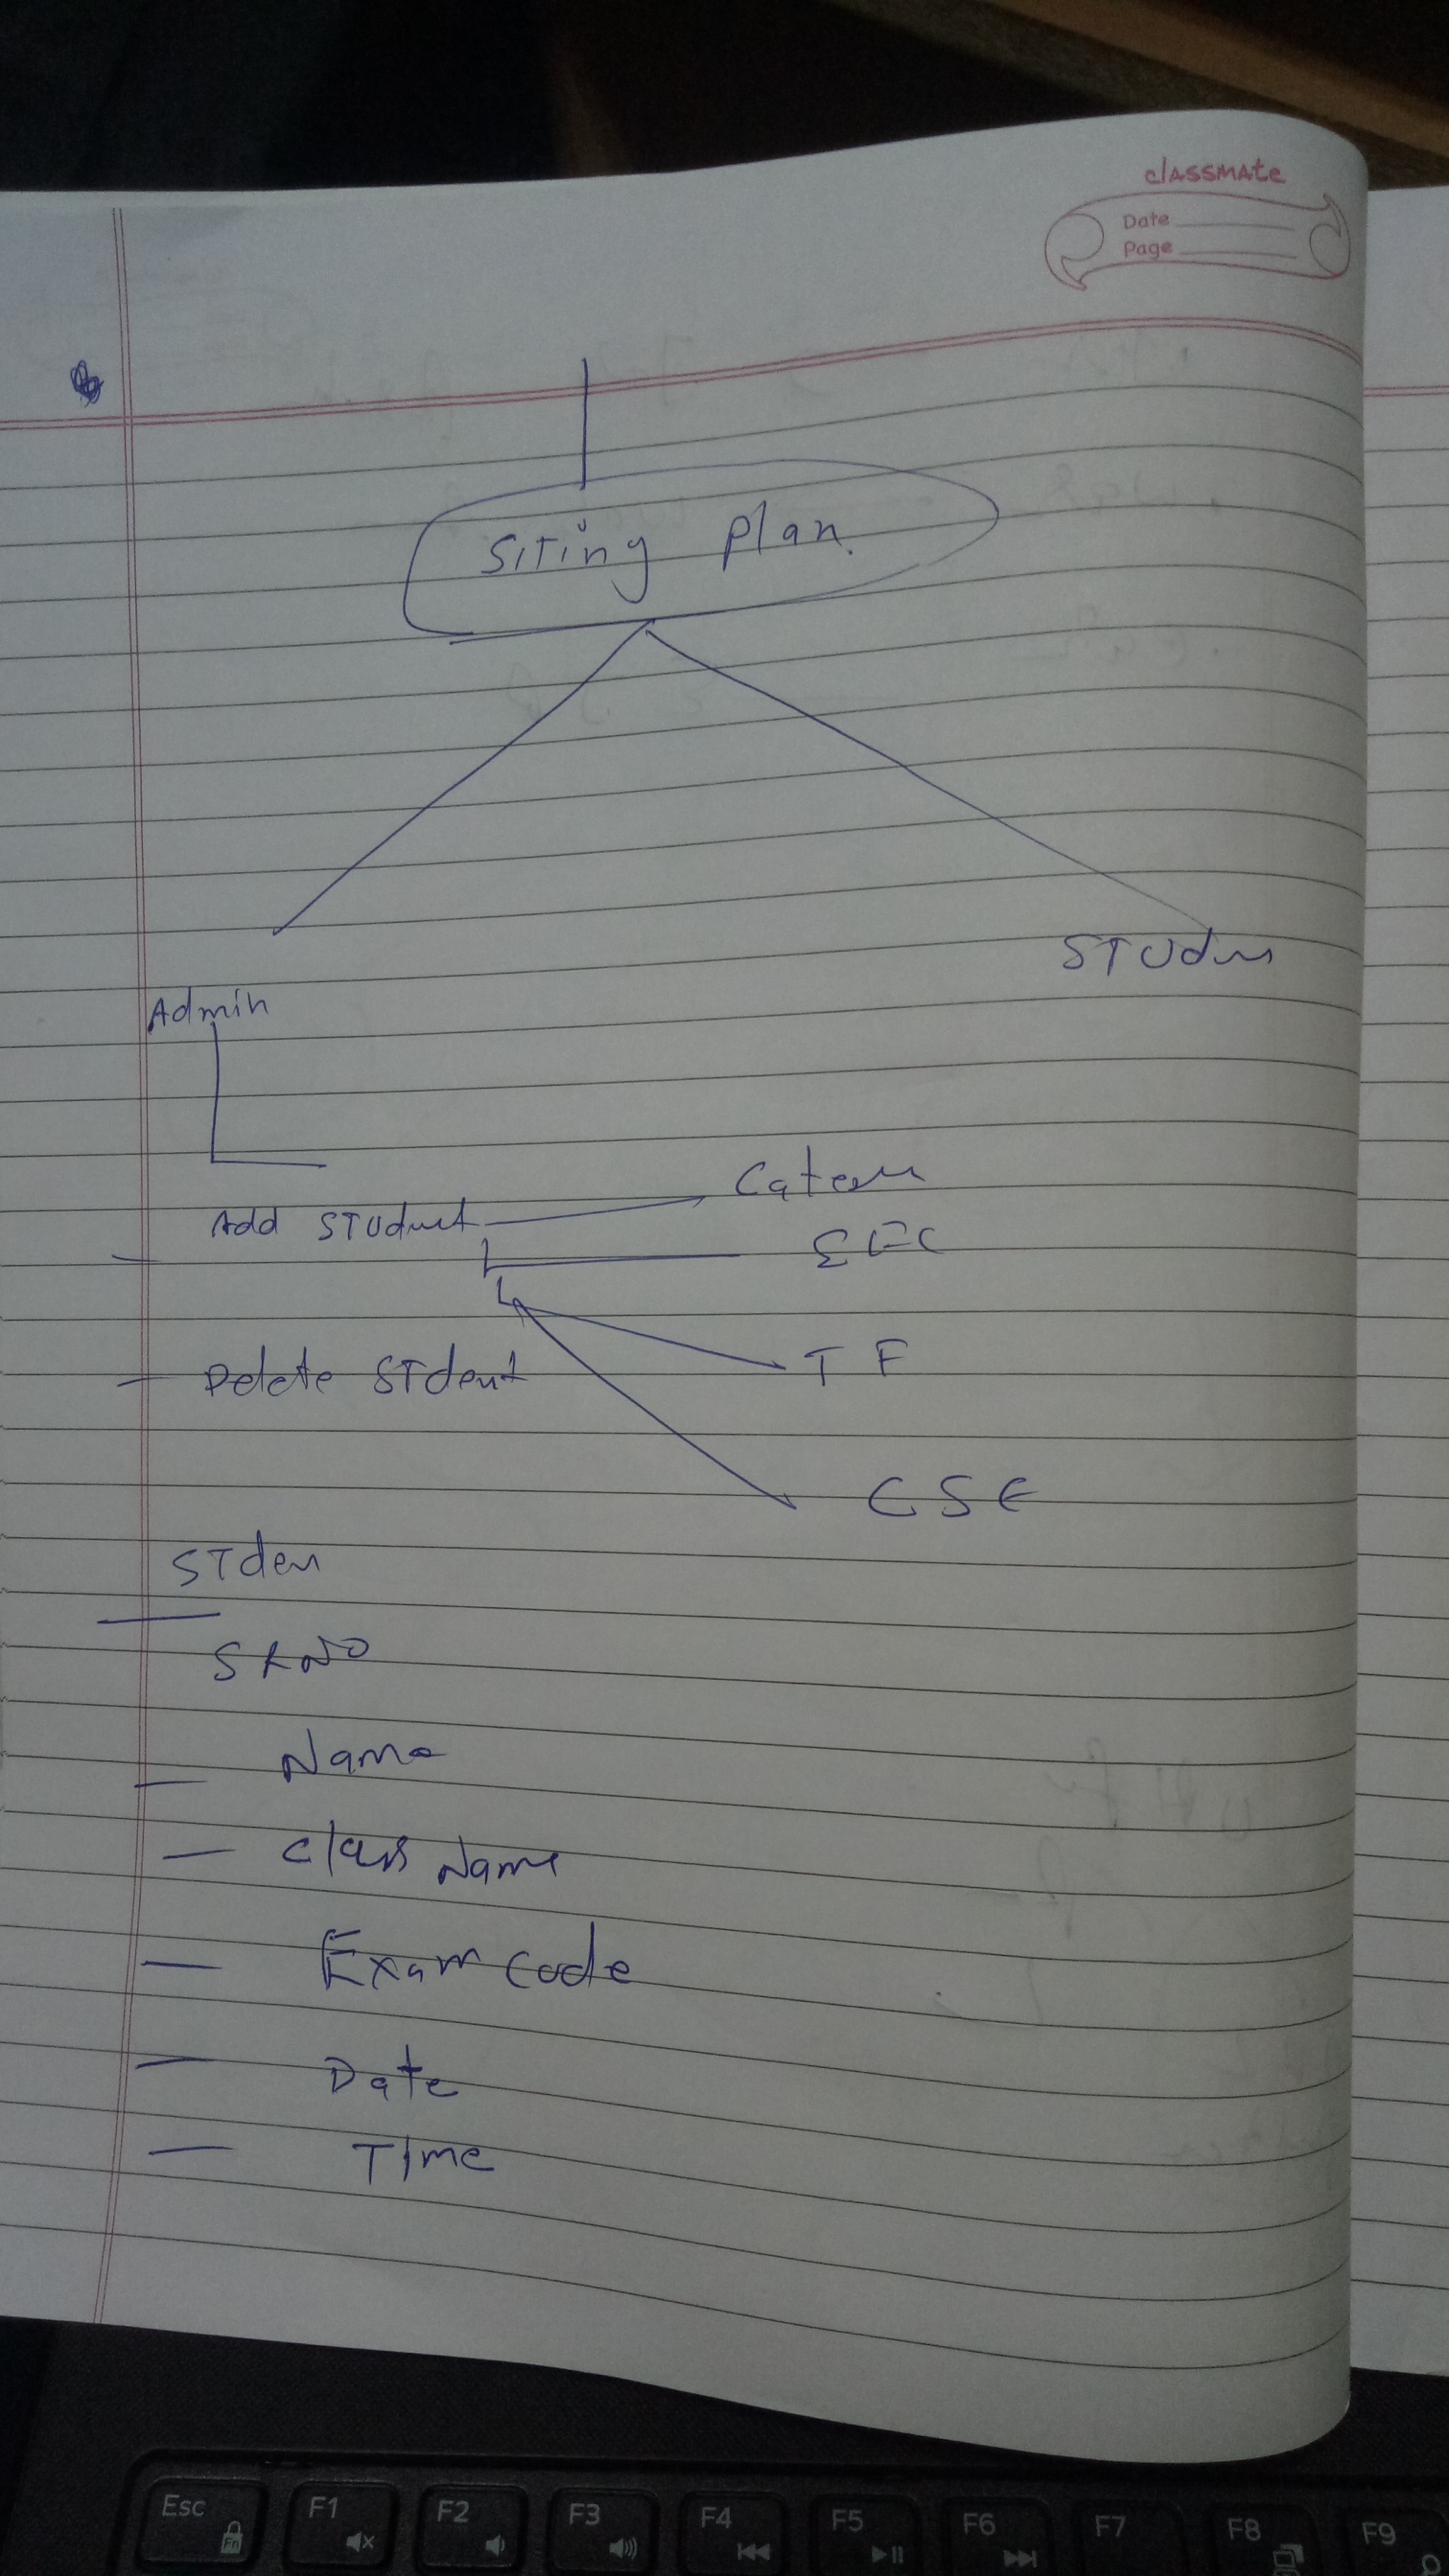 classmate
Date
Page
Siting plan.
STUdn
Admin
Add STUdent
EEC
Delete STdent
T F
CSE
STden
SRNO
Name
class Name
Exam code
Date
TIme
Esc
Fn
F1
F2
F3
F4
F5
F6
F7
F8
F9